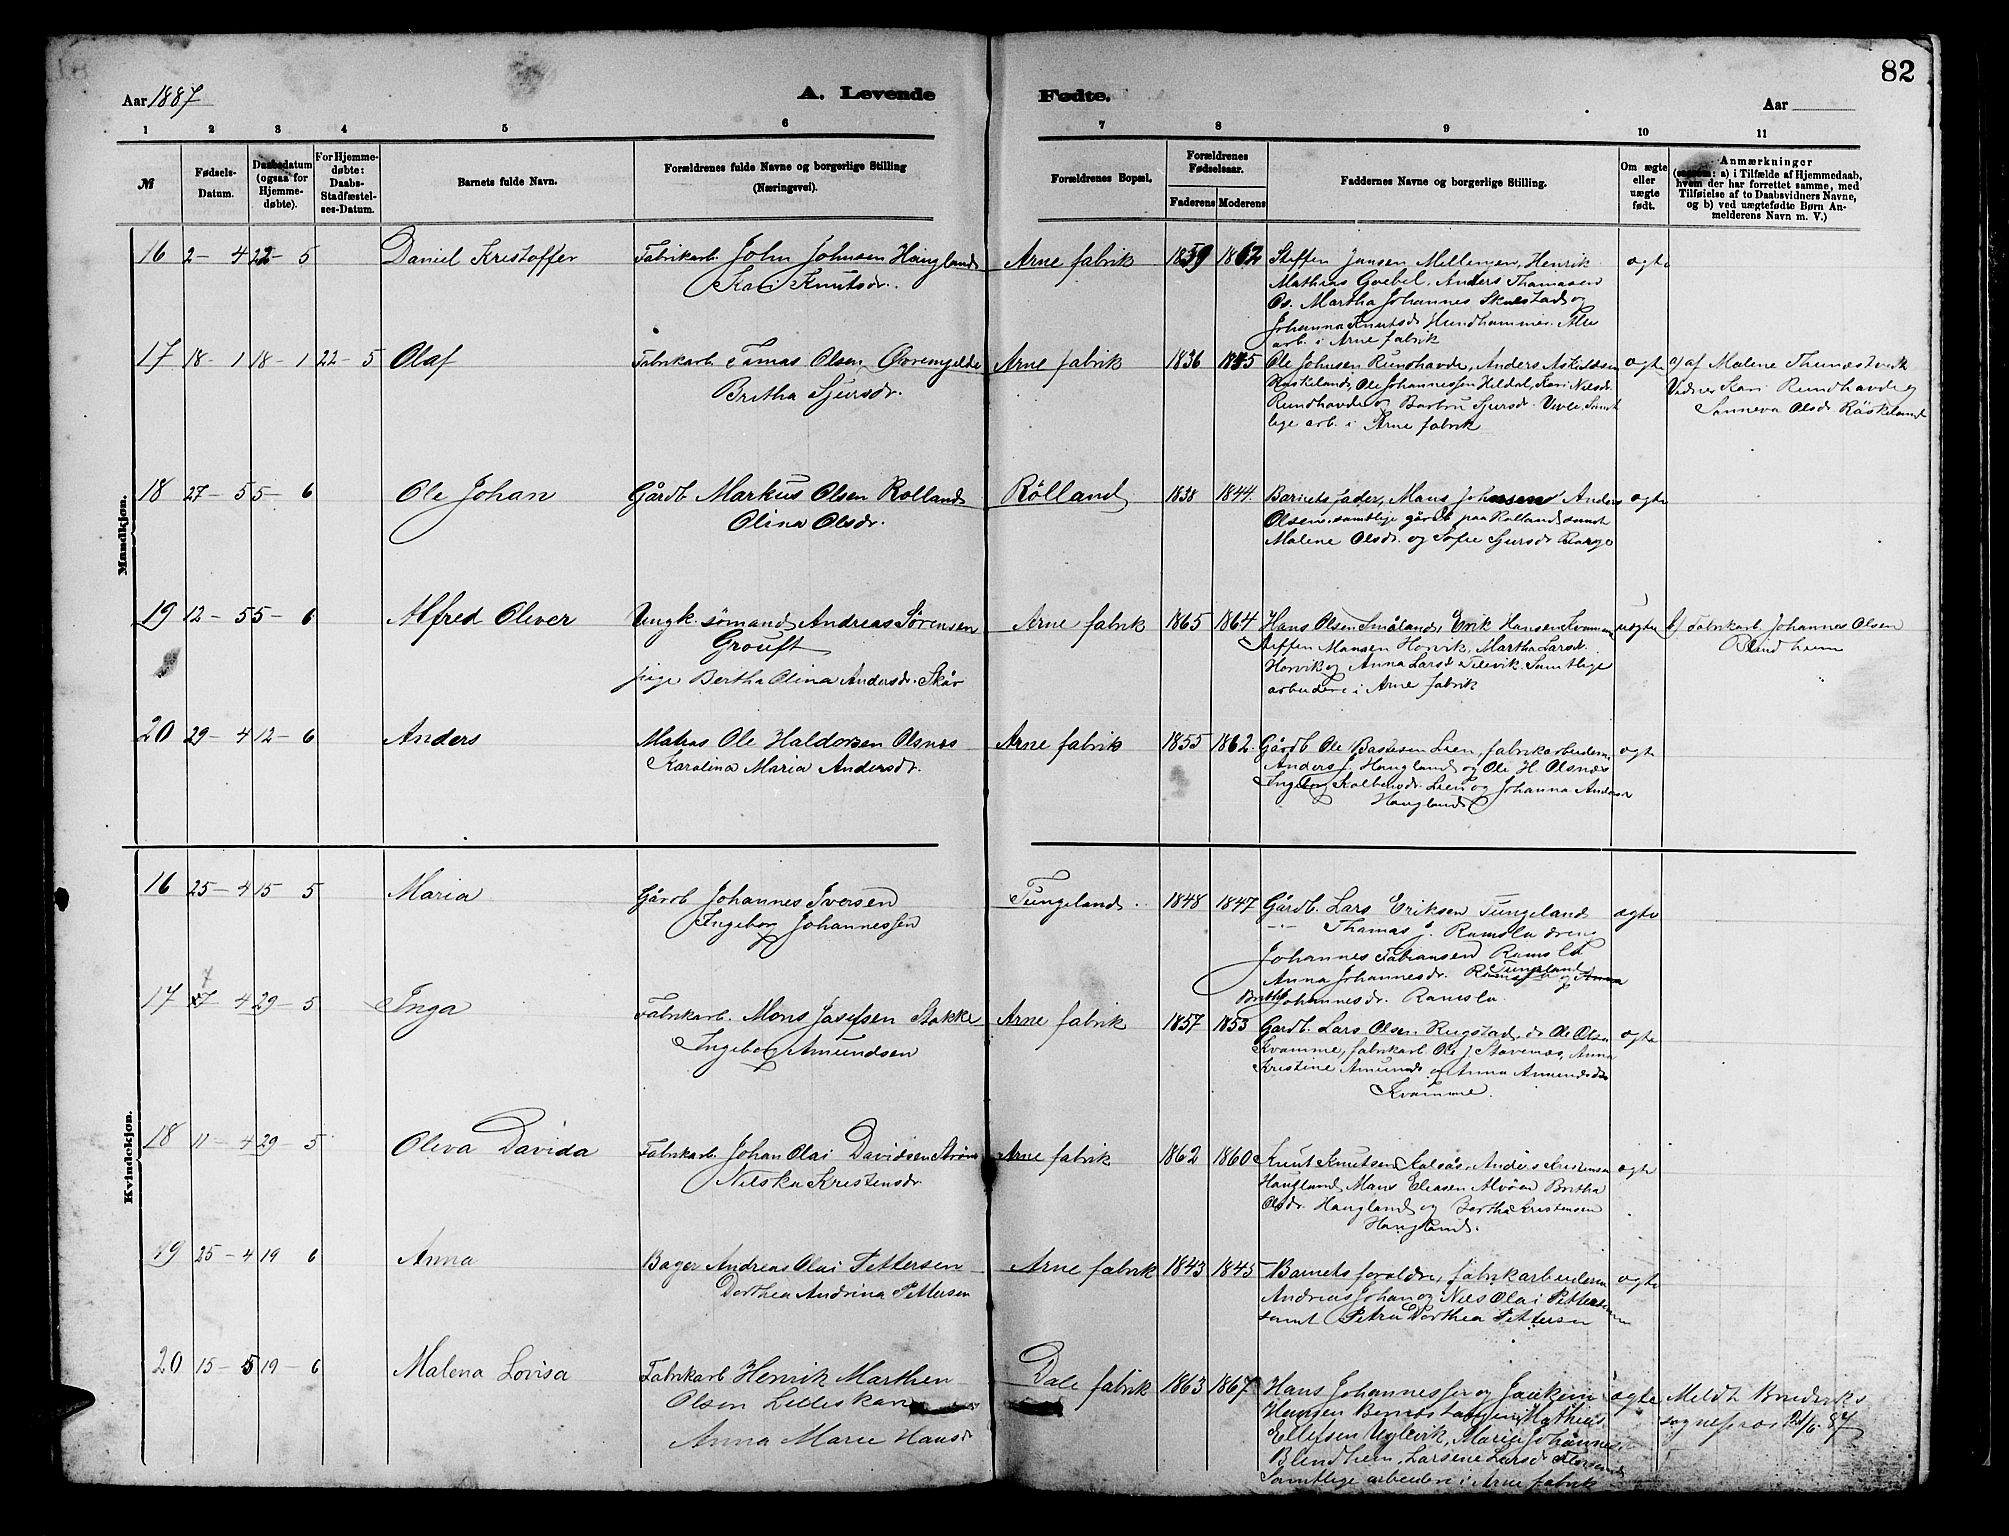 82
Aar 1887
A. Levende
Fødte.
Aar
1 2 3 4 5 6 7 8 9 10 11
№
Fødsels-
Datum.
Daabsdatum
(ogsaa for
Hjemme-
døbte).
For Hjemme-
døbte:
Daabs-
Stadfæstel-
ses-Datum.
Barnets fulde Navn.
Forældrenes fulde Navne og borgerlige Stilling
(Næringsvei).
Forældrenes Bopæl.
Forældrenes
Fødselsaar.
Faderens Moderens
Faddernes Navne og borgerlige Stilling.
Om ægte
eller
uægte
født.
Anmærkninger
(saasom: a) i Tilfælde af Hjemmedaab,
hvem der har forrettet samme, med
Tilføielse af to Daabsvidners Navne,
og b) ved uægtefødte Børn An-
melderens Navn m. V.)
Mandkjøn.
16 2-4 22-5 Daniel Kristoffer
Fabrikarb. John Johnsen Haugland
Kari Knutsdr.
Arne fabrik 1859 1862
Steffen Jansen Mellingen, Henrik
Mathias Goebel, Anders Thomasen
Os. Martha Johannes Skulstad og
Johanna Knutsdr Hundhammer. Alle
arb. i Arne fabrik
ægte
17 18-1 18-1 22-5 Olaf
Fabrikarb. Tomas Olsen Øvrengjelde
Britha Sjursdr.
Arne fabrik 1836 1845
Ole Johnsen Rundhavde, Anders Askildsen
Ole Johannessen Heldal, Kari Nilsdr.
Rundhavde og Barbru Sjursdr. Samt
lige arb. i Arne fabrik
ægte
a) af Malene
Vidner Kari Rundhavde og
Sanneva Olsdr Räskeland
18 27-5 5-6 Ole Johan
Gårdb Markus Olsen Rolland
Olina Olsdr.
Rölland 1838 1844.
Barnets fader, Mons Johnsen Anders
Olsen, samtlige gårdb paa Rolland samt
Malene Olsdr. og Sofie Sjursdr Borge
ægte
19 12-5 5-6 Alfred Oliver
Ungk. sømand Andreas Sørensen
Grouft
pige Bertha Olina Andersdr. Skår
Arne fabrik 1865 1864
Hans Olsen Småland, Erik Hansen Kvamme
Steffen Monsen Horvik, Martha Larsdr.
Horvik og Anna Larsdr Samtlige
arbeidere i Arne fabrik
uægte
b) Fabrikarb. Johannes Olsen
Blindheim
20 29-4 12-6 Anders
Matros Ole Haldorsen Olsnes
Karolina Maria Andersdr.
Arne fabrik 1855 1862.
Gårdb Ole Bastesen Lien, fabrikarbeiderne
Anders J. Haugland og Ole H. Olsnæs
Ingeborg Kolbensdr. Lien og Johanna Andersdr
Haugland
ægte
Kvindekjøn.
16 25-4 15 5 Maria
Gårdb Johannes Iversen
Ingeborg Johannessen
Tungeland. 1848 1847
Gårdb. Lars Eriksen Tungeland
-"- Thomas J. Ramsla dreng
Johannes Fabiansen Ramsla
Anna Johannesdr. Tungeland
Britha Johannesdr. Ramsla.
ægte
17 7 4 29-5 Inga
Fabrikarb. Mons Josefsen Stokke
Ingeborg Amundsen
Arne fabrik 1857 1853
Gårdb. Lars Olsen Rugstad, do Ole Olsen
Kvamme, fabrikarb. Ole J Stavenæs, Anna
Kristine Amunds og Anna Amundsdr
Kvamme.
ægte
18 11-4 29-5 Oliva Davida
Fabrikarb. Johan Olai Davidsen Strøm
Nilska Kristensdr.
Arne fabrik 1862 1860
Knut Knutsen Kalsås, Anders Kristensen
Haugland, Mons Eliasen Alvøen Britha
Olsdr. Haugland og Bertha Kristensen
Haugland.
ægte
19 25-4 19 6 Anna
Bager Andreas Olai Pettersen
Dorthea Andrina Pettersen
Arne fabrik 1843 1845
Barnets forældre, fabrikarbeiderne
Andreas Johan og Nils Olai Pettersen
samt Petra Dorthea Pettersen
ægte
20 15-5 19-6 Malena Lovisa
Fabrikarb Henrik Marthen
Olsen Lilleskare
Anna Marie Hansdr
Dale fabrik 1863 1867
Hans Johannessen og Joakim
Hansen Mathias
Ellefsen Uglvik, Marie Johannes
Blindheim, Larsene Larsdr
Samtlige arbeidere i Arne fabrik
ægte
Meldt Bruderiks
sognepræst 21/6 87